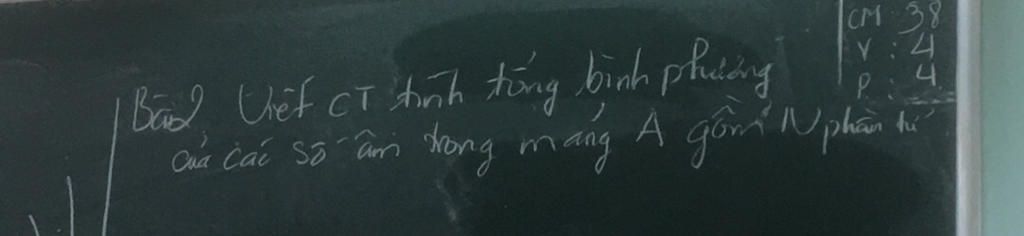 CM : 38
V : 4
P : 4
Bài 2 Viết CT tính tổng bình phương
của các số âm trong mảng A gồm N phần tử